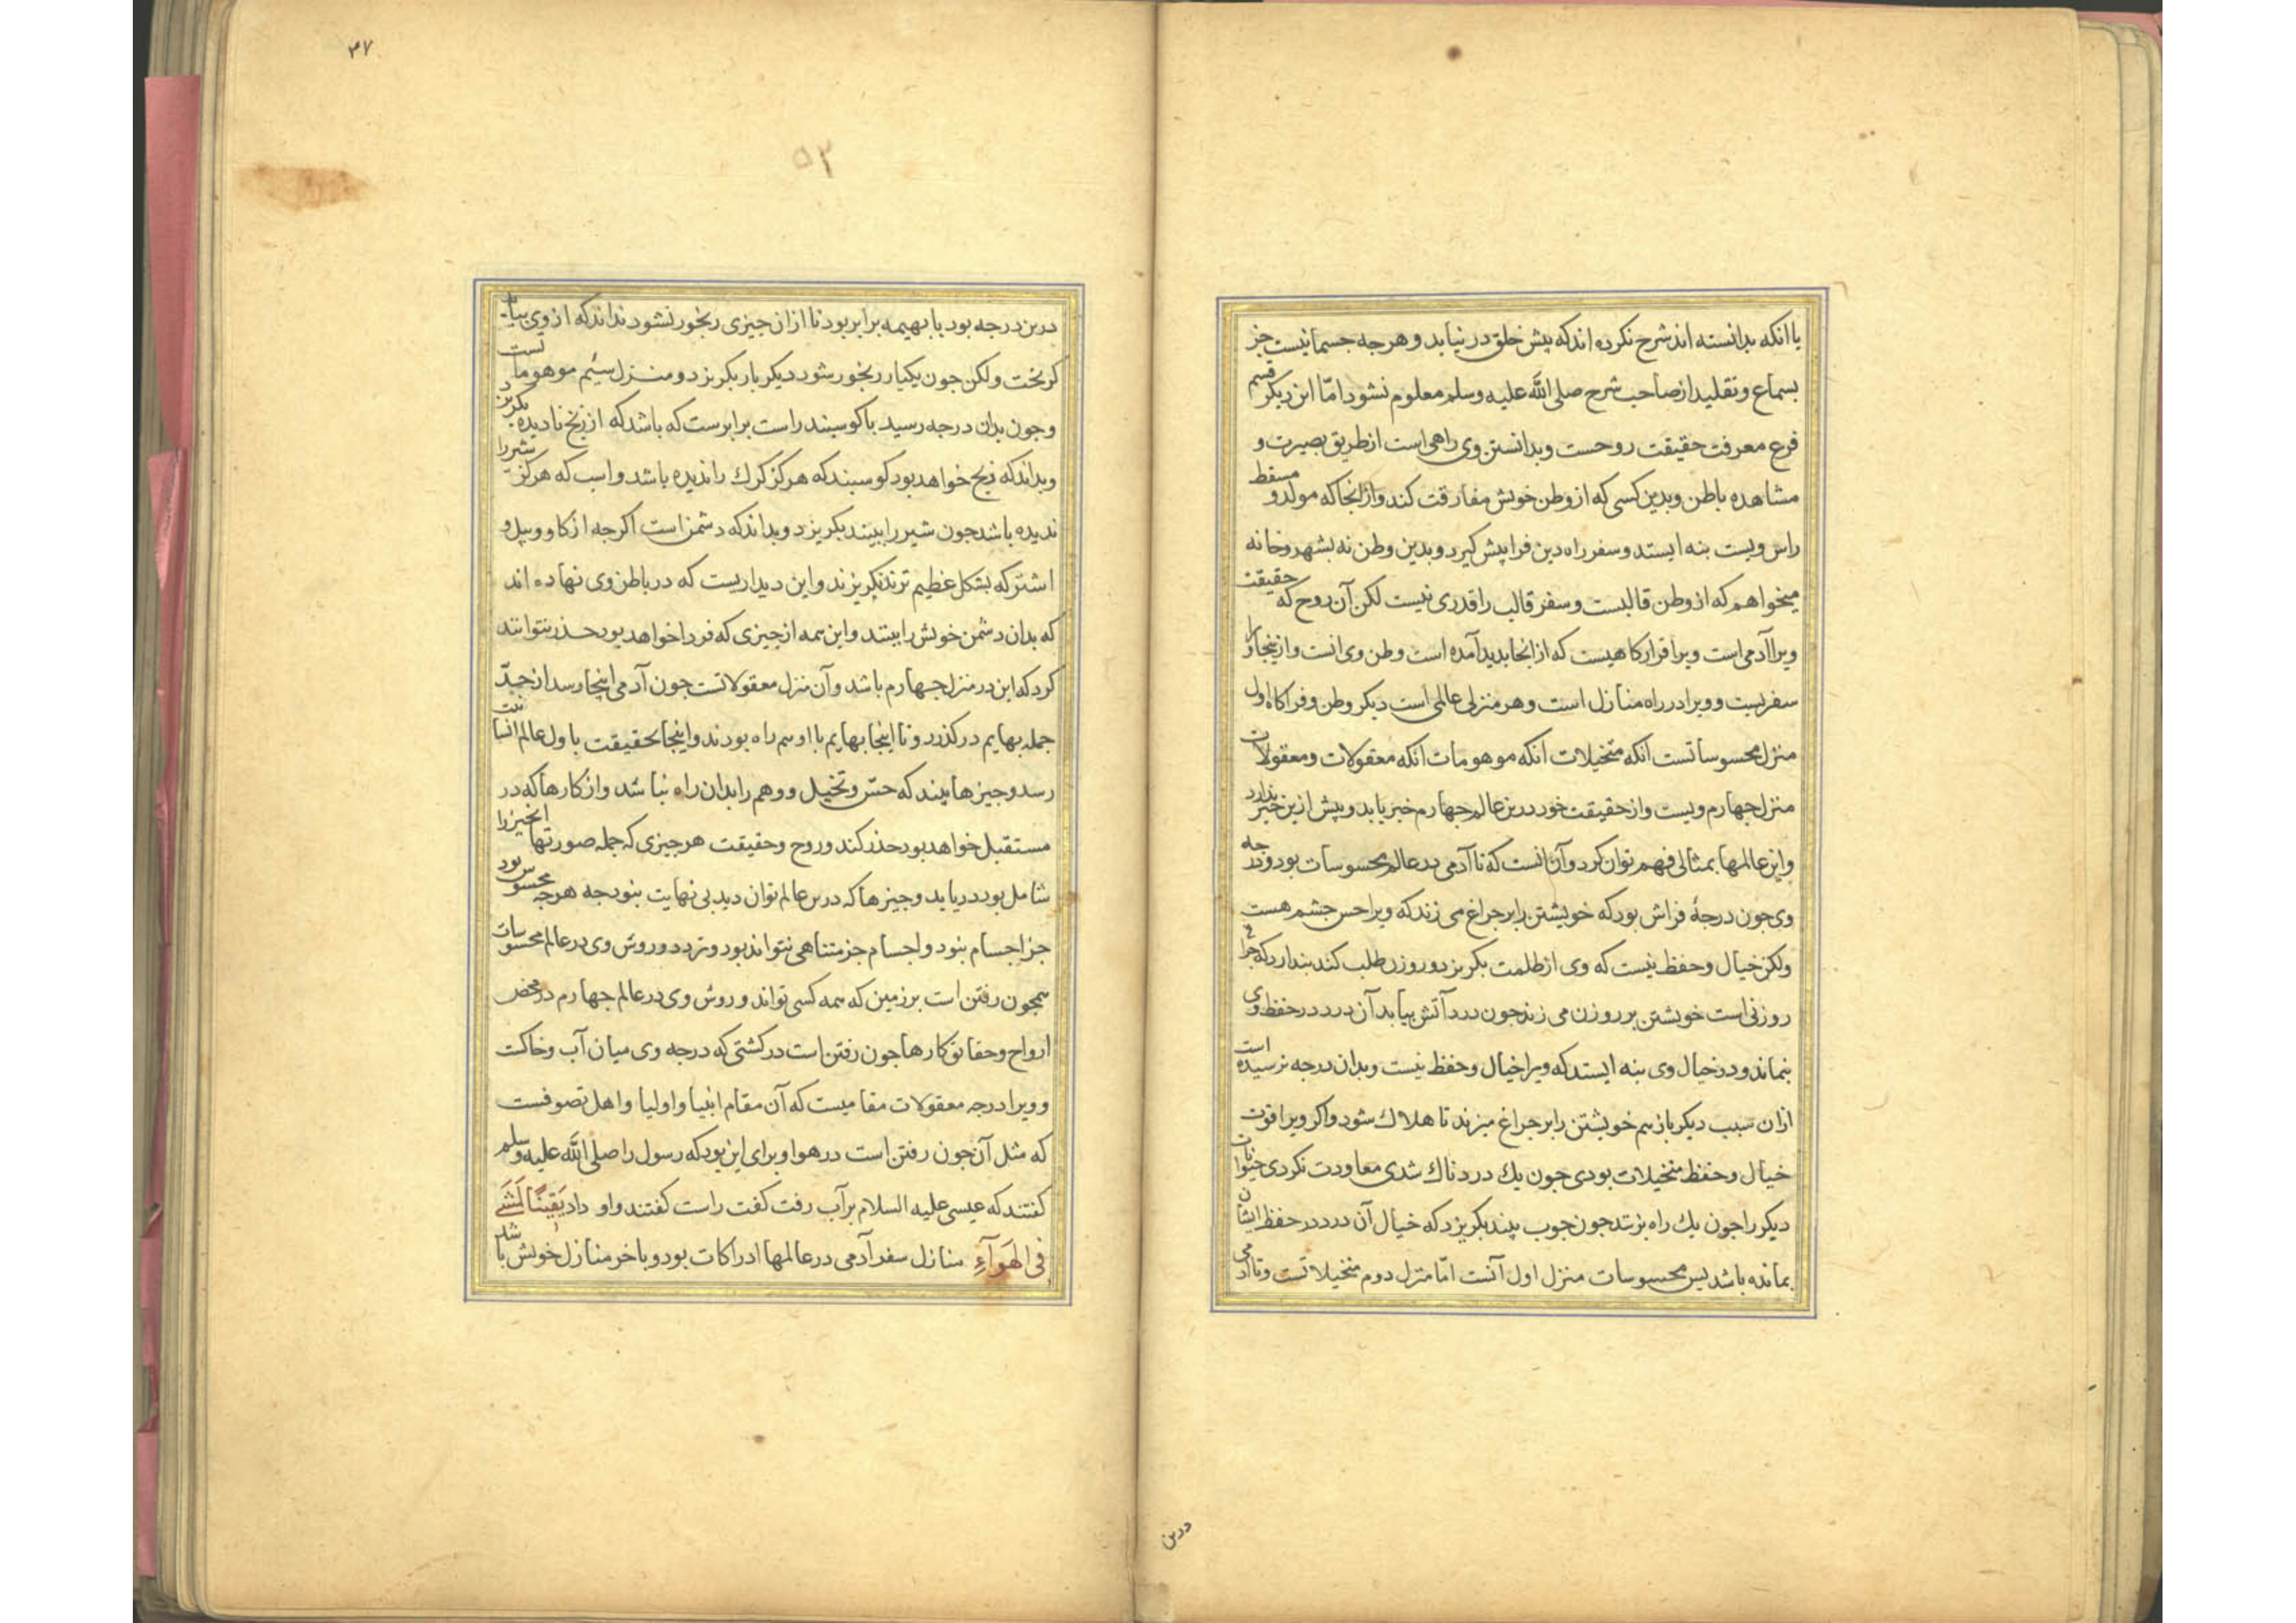 یا انکه بدانسته اند شرح نکرده اند که بیش خلق در نیابد و هر جه جسمانیست جز
بسماع و تقلید از صاحب شرح صلی الله علیه وسلم معلوم نشود امّا این دیکر قسم
فرع معرفت حقیقت روحست و بدانستن وی راهی است از طریق بصیرت و
مشاهده باطن و بدین کسی که از وطن خویش مفارقت کند و از انجا که مولد و مسقط
راس ویست بنه ایستد و سفر راه دین فرا پیش کیرد و بدین وطن نه بشهر و خانه
میخواهم که از وطن قالبست و سفر قالب را قدری نیست لکن آن روح که حقیقت
ویرا آدمی است ویرا قرارکاهیست که از انجا بدید آمده است وطن وی انست و از ینجا ورا
سفریست و ویرا در راه منازل است و هر منزلی عالمی است دیکر وطن و قراکاه اول
منزل محسوساتست انکه متخیلات انکه موهومات انکه معقولات و معقولات
منزل جهارم ویست و از حقیقت خود درین عالم جهارم خبر یابد و پیش ازین خبر ندارد
و این عالمها بمثالی فهم توان کرد و آن انست که تا آدمی در عالم محسوسات بود درجه
وی جون درجهٔ فراش بود که خویشتن را بر جراغ می زند که ویرا حس جشم هست
ولکن خیال و حفظ نیست که وی از ظلمت بکریزد و روزن طلب کند بندارد که جراغ
روزنی است خویشتن بر روزن می زند جون درد آتش بیابد آن درد در حفظ وی
بنماند و در خیال وی بنه ایستد که ویرا خیال و حفظ نیست و بدان درجه نرسیده است
ازان سبب دیکر باز هم خویشتن را بر جراغ میزند تا هلاک شود و اکر ویرا قوت
خیال و حفظ متخیلات بودی جون یک درد ناک شدی معاودت نکردی حیوانات
دیکر را جون یک راه بزنند جون جوب بینند بکریزد که خیال آن درد در حفظ ایشان
بمانده باشد پس محسوسات منزل اول آنست امّا منزل دوم متخیلاتست و تا آدمی
درین
۳۷
۵۳
درین درجه بود با بهیمه برابر بود تا از ان جیزی رنجور نشود نداند که از وی بیاید
کریخت ولکن جون یکبار رنجور شود دیکر بار بکریزد و منزل سیُم موهوماتست
وجون بدان درجه رسید با کوسبند راست برابرست که باشد که از رنج نادیده بکریزد
وبداند که رنج خواهد بود کوسبند که هرکز کرک را ندیده باشد و اسب که هرکز شیر را
ندیده باشد جون شیر را ببیند بکریزد و بداند که دشمن است اکر جه از کاو و بیل و
اشتر که بشکل عظیم ترند نکریزند و این دیداریست که در باطن وی نهاده اند
که بدان دشمن خویش را بینند و این همه از جیزی که فردا خواهد بود حذر نتوانند
کرد که این در منزل جهارم باشد و آن منزل معقولاتست جون آدمی اینجا رسد از حدّ
جمله بهایم درکذرد و تا اینجا بهایم با او هم راه بودند و اینجا بحقیقت باول عالم انسانیت
رسد و جیزها بیند که حسّ و تخیل و وهم را بدان راه نباشد و از کارها که در
مستقبل خواهد بود حذر کند و روح و حقیقت هر جیزی که جمله صورتها انجیز را
شامل بود دریابد و جیزها که درین عالم توان دید بی نهایت بنود جه هرجه محسوس بود
جز اجسام بنود و اجسام جز متناهی نتواند بود و تردد و روش وی در عالم محسوسات
همجون رفتن است بر زمین که همه کسی تواند و روش وی در عالم جهارم در محض
ارواح و حقایق کارها جون رفتن است در کشتی که درجه وی میان آب و خاکست
و ویرا درجه معقولات مقامیست که آن مقام انبیا و اولیا و اهل تصوفست
که مثل آن جون رفتن است در هوا و برای این بود که رسول را صلی الله علیه وسلم
کفتند که عیسی علیه السلام بر آب رفت کفت راست کفتند و لو داد یَقینًا لَمَشَیٰ
فی الهَوَآءِ منازل سفر آدمی در عالمها ادراکات بود و باخر منازل خویش باشد